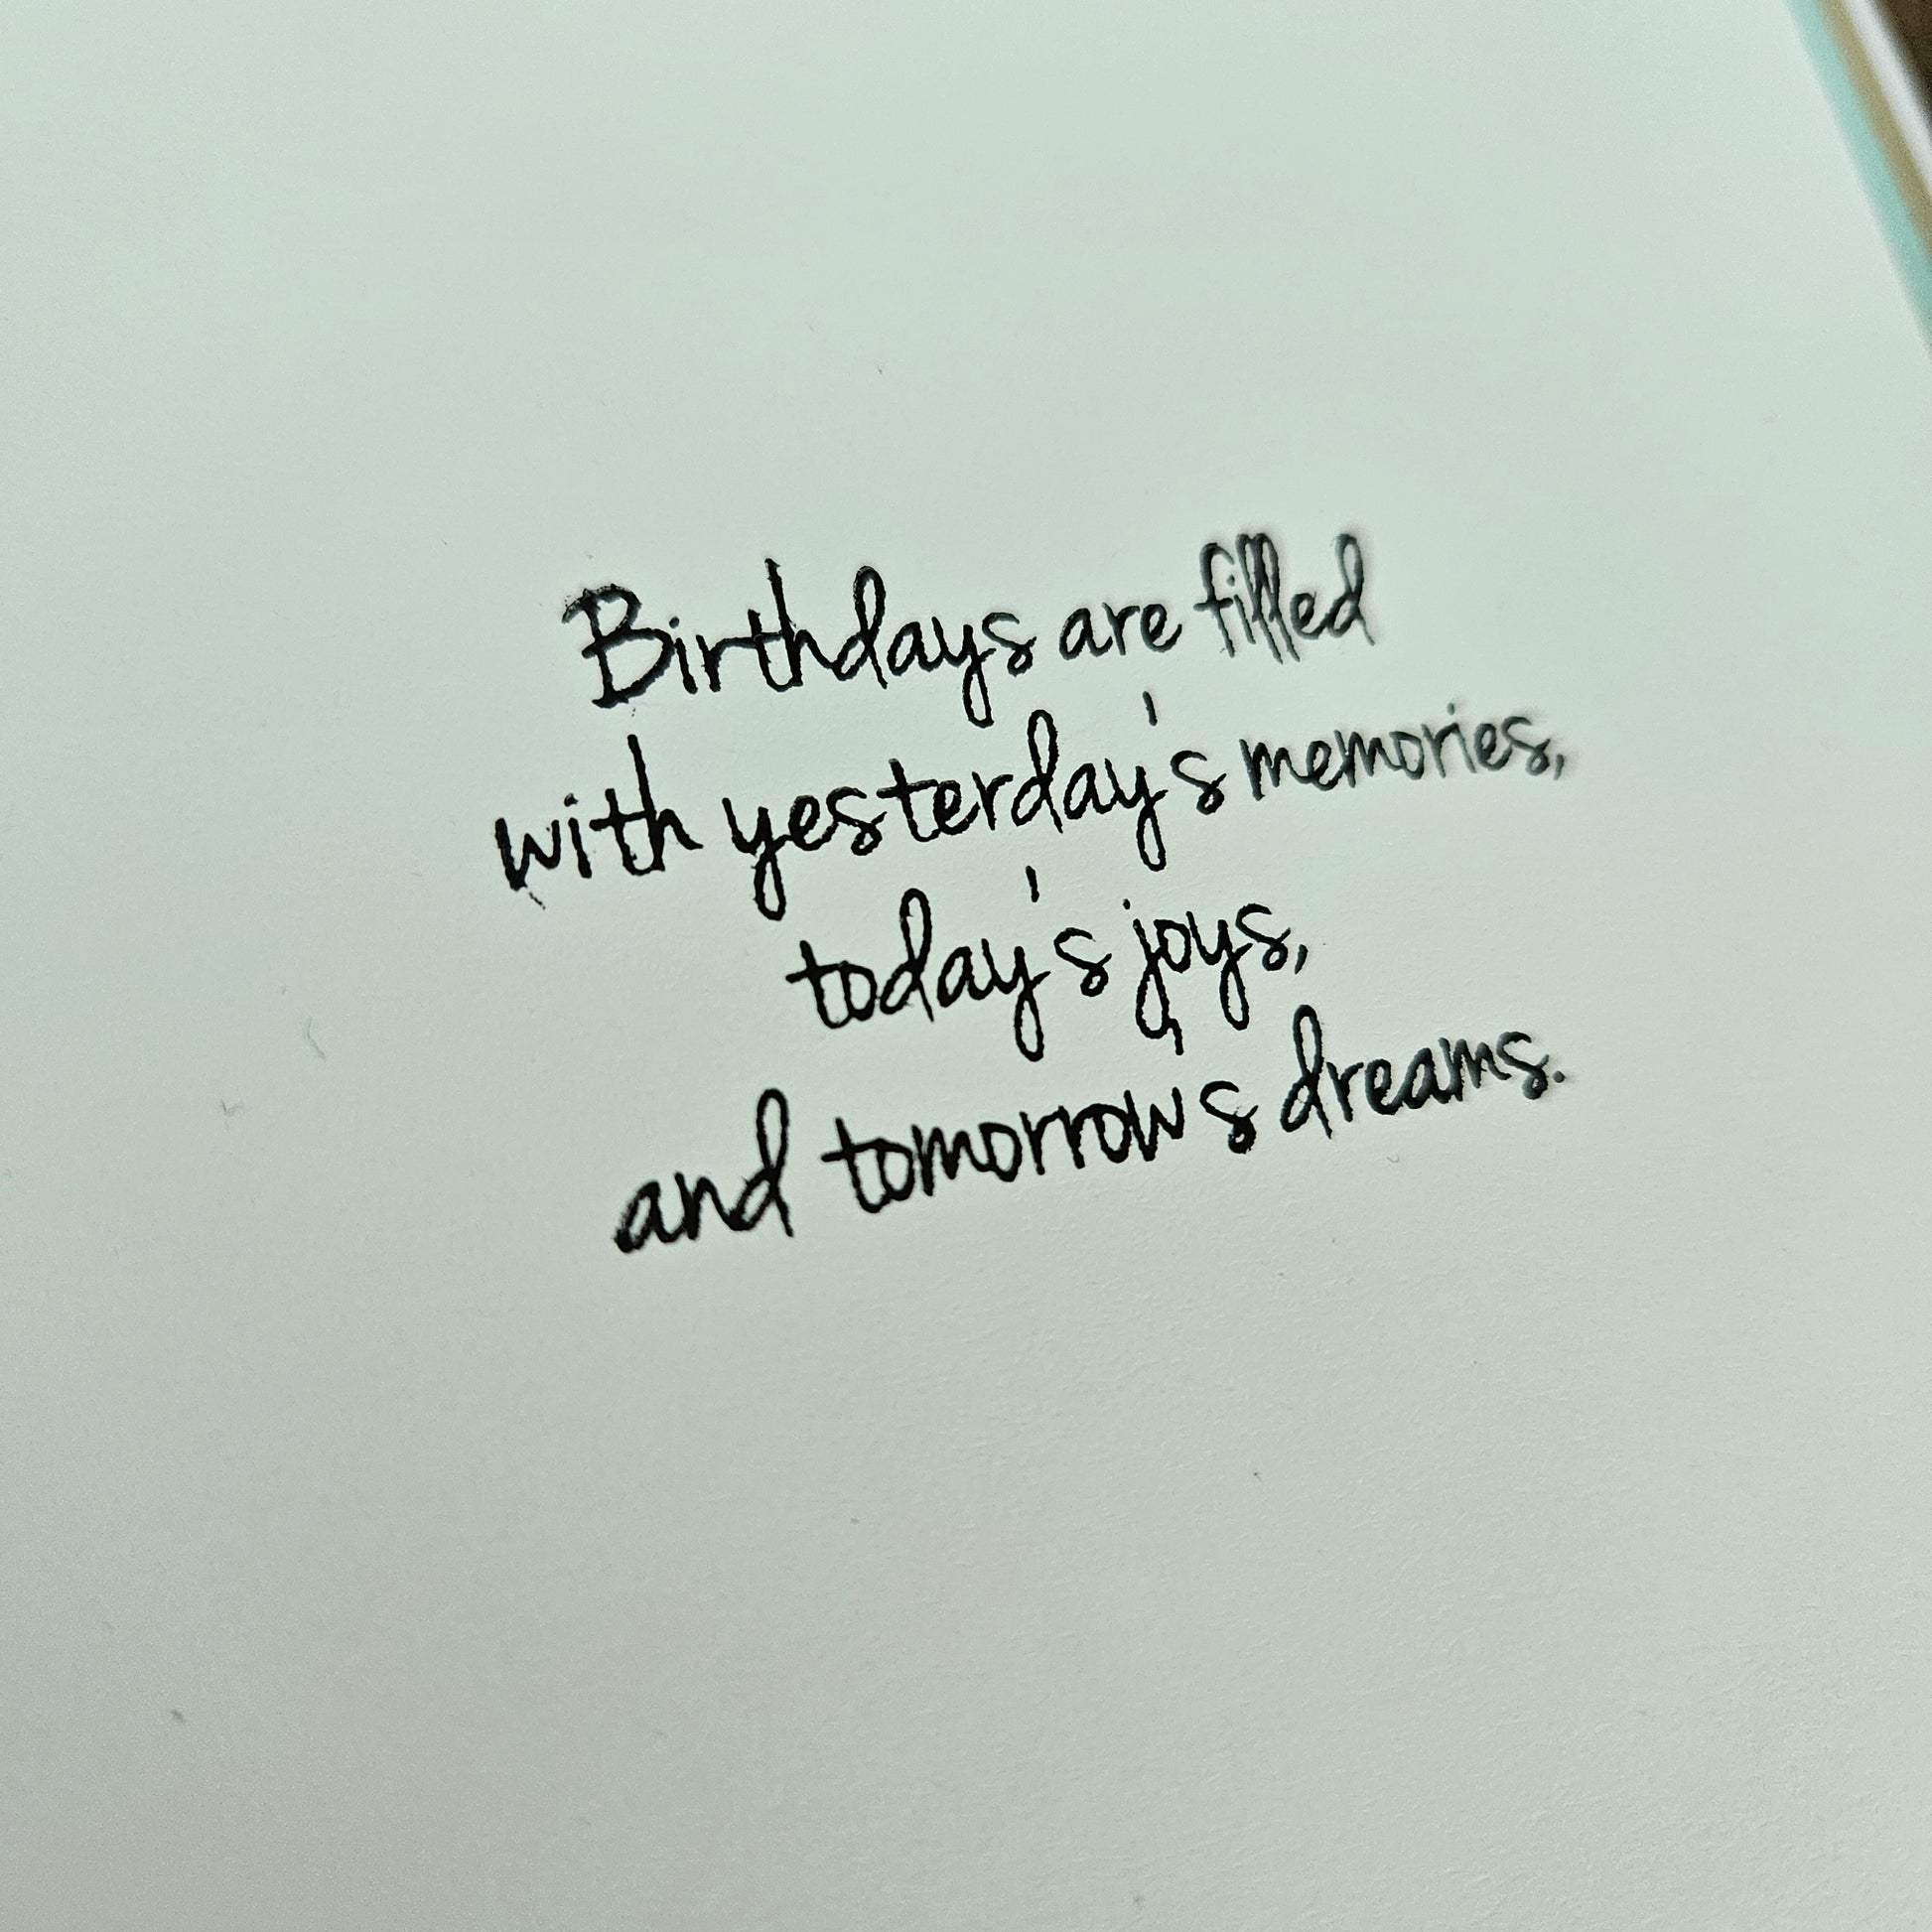 Birthdays are filled
with yesterday's memories,
today's joys,
and tomorrow's dreams.